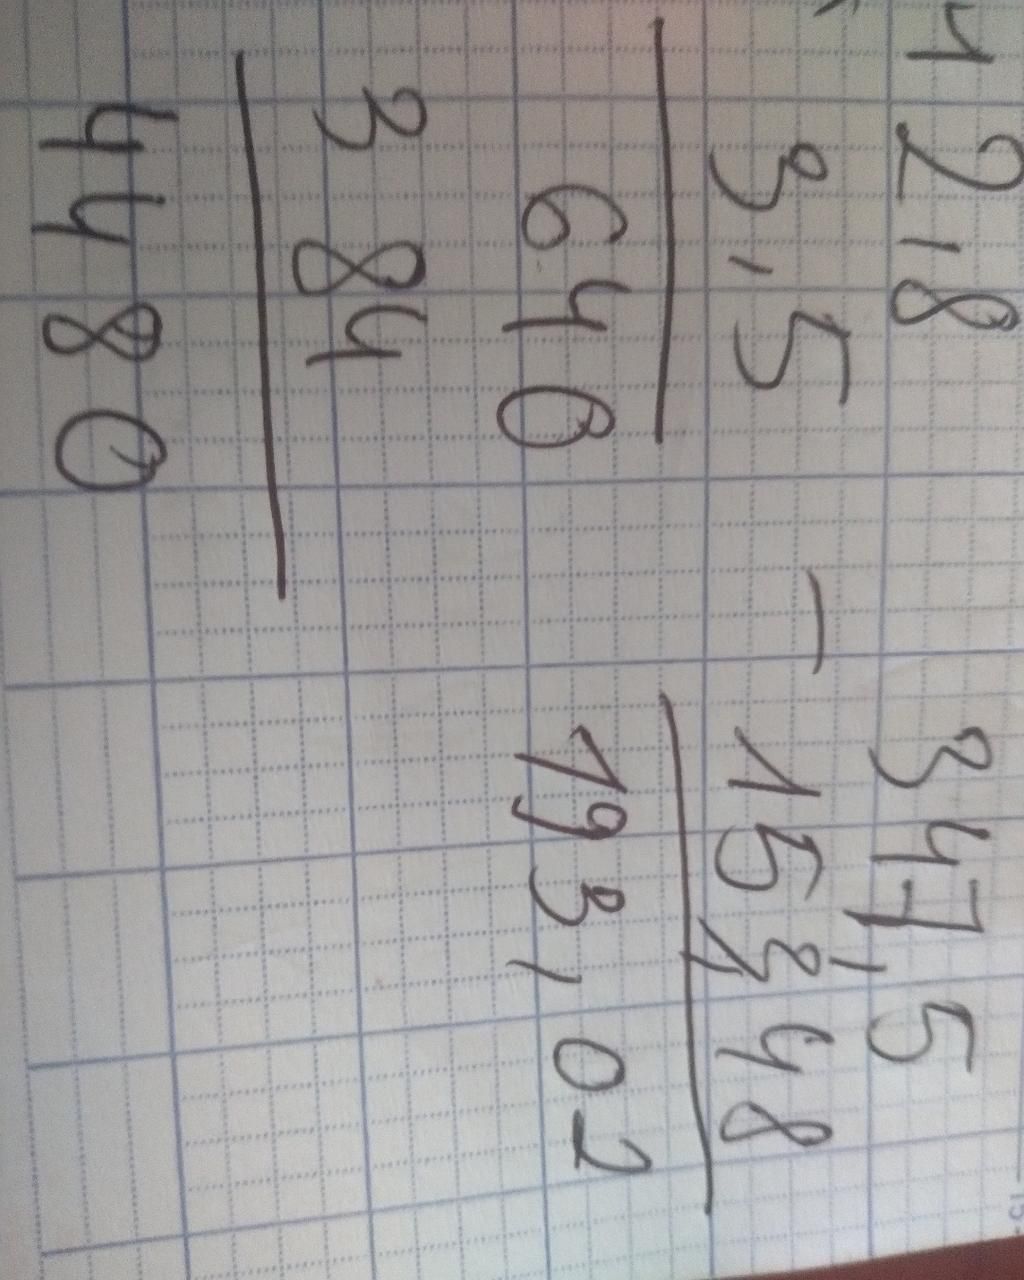 12,8
3,5
640
384
4480
347,5
−
193,02